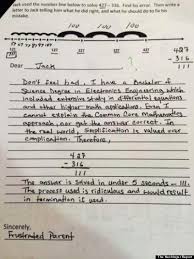 Jack used the number line below to solve 427 - 316. Find his error. Then write
a letter to Jack telling him what he did right, and what he should do to fix his
mistake.
427
- 316
111
Dear Jack
Don't feel bad. I have a Bachelor of
Science Degree in Electronics Engineering which
included extensive study in differential equations
and other higher math applications. Even I
cannot explain the Common Core mathematics
approach, nor get the answer correct. In
the real world, simplification is valued over
complication. Therefore,
427
- 316
111
The answer is solved in under 5 seconds - 111.
The process used is ridiculous and would result
in termination if used.
Sincerely,
Frustrated Parent